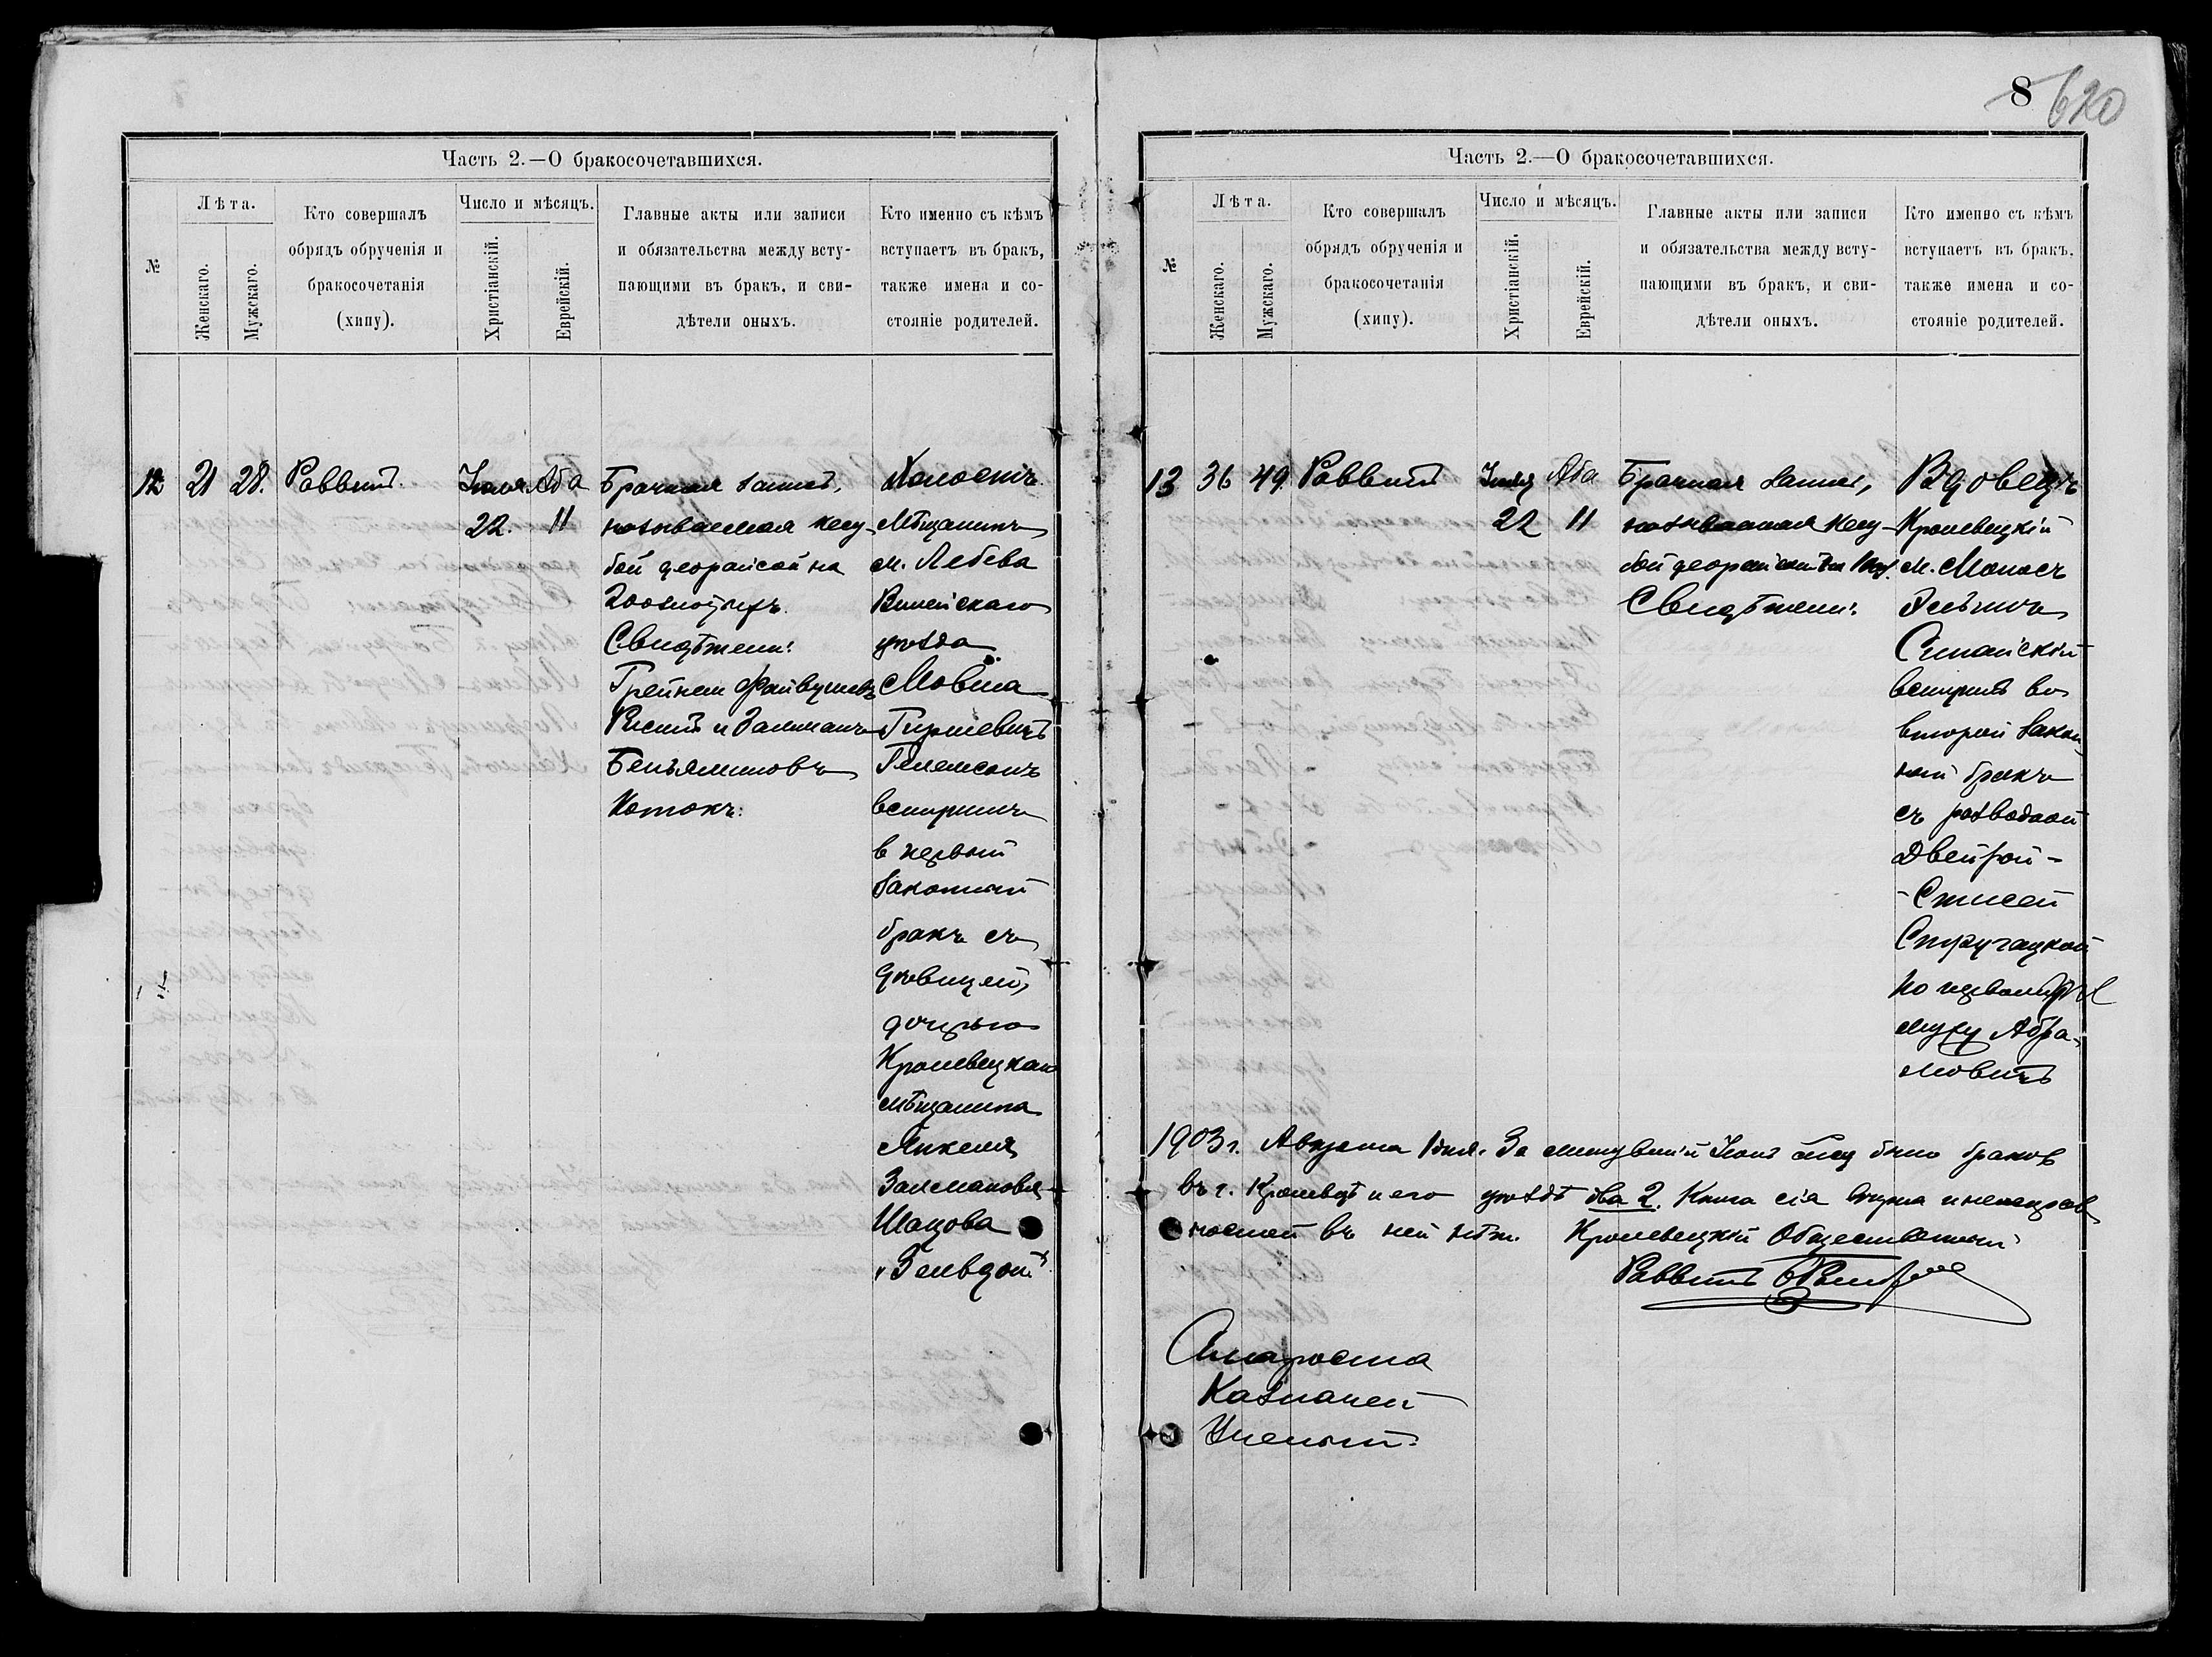 Часть 2.—О бракосочетавшихся.
№
Лѣта.
Женскаго.
Мужскаго.
Кто совершалъ
обрядъ обрученія и
бракосочетанія
(хипу).
Число и мѣсяцъ.
Христіанскій.
Еврейскій.
Главные акты или записи
и обязательства между всту-
пающими въ бракъ, и сви-
дѣтели оныхъ.
Кто именно съ кѣмъ
вступаетъ въ бракъ,
также имена и со-
стояніе родителей.
12 21 28. Раввинъ. Іюля Аба
22. 11
Брачная запись,
называемая кесу-
бой деорайсой на
200 злотыхъ.
Свидѣтели:
Файвушевъ
и Залманъ
Беньяминовъ
Котокъ.
Холостъ
Мѣщанинъ
м. Лебева
Вилейскаго
уѣзда
Мовша
Гиршевичъ
вступилъ
в первый
законный
бракъ съ
дѣвицей,
дочерью
Кролевецкаго
мѣщанина
Янкеля
Залманова
Шацова
"Зелвдой"
8 620
Часть 2.—О бракосочетавшихся.
№
Лѣта.
Женскаго.
Мужскаго.
Кто совершалъ
обрядъ обрученія и
бракосочетанія
(хипу).
Число и мѣсяцъ.
Христіанскій.
Еврейскій.
Главные акты или записи
и обязательства между всту-
пающими въ бракъ, и сви-
дѣтели оныхъ.
Кто именно съ кѣмъ
вступаетъ въ бракъ,
также имена и со-
стояніе родителей.
13 36 49. Раввинъ Іюля Аба
22 11
Брачная запись,
называемая кесу-
бой деорайсой на
Свидѣтели:
Вдовецъ
Кролевецкій
м. Монось
Синайскій
вступилъ во
второй закон
ный бракъ
съ разводной
Двейрой-
-Стисей
Стругацкой
по первому
мужу Абра-
мовичъ
1903 г. Августа 1 дня. За минувшій Іюль мѣсяцъ было браковъ
въ г. Кролевцѣ и его уѣздѣ два 2. Книга сія вѣрна и неисправ
ностей въ ней нѣтъ. Кролевецкій Общественный
Раввинъ
Староста
Казначей
Ученый.